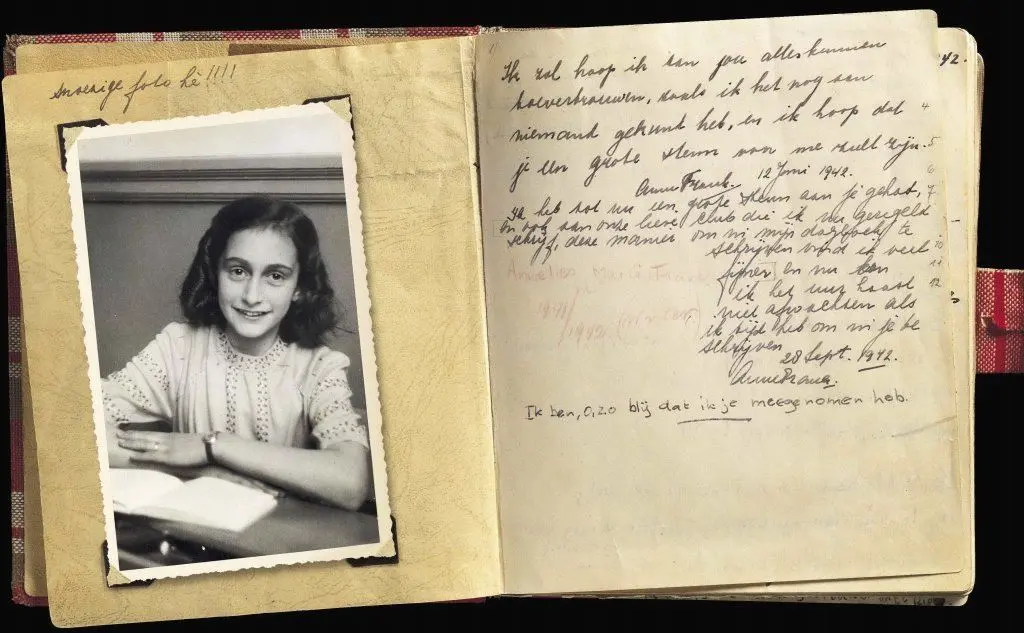 snoezige foto hè!!!!
Ik zal hoop ik aan jou alles kunnen
toevertrouwen, zoals ik het nog aan
niemand gekund heb, en ik hoop dat
je een grote steun voor me zult zijn.
Anne Frank. 12 Juni 1942.
Ik heb tot nu een grote steun aan je gehad,
en ook aan onze lieve club die ik nu geregeld
schrijf, deze manier om in mijn dagboek te
schrijven vind ik veel
fijner en nu kan
ik het uur haast
niet afwachten als
ik tijd heb om in je te
schrijven
28 Sept. 1942.
Anne Frank.
Ik ben, O, zo blij dat ik je meegenomen heb.
42.
4
5
6
7
10
11
12